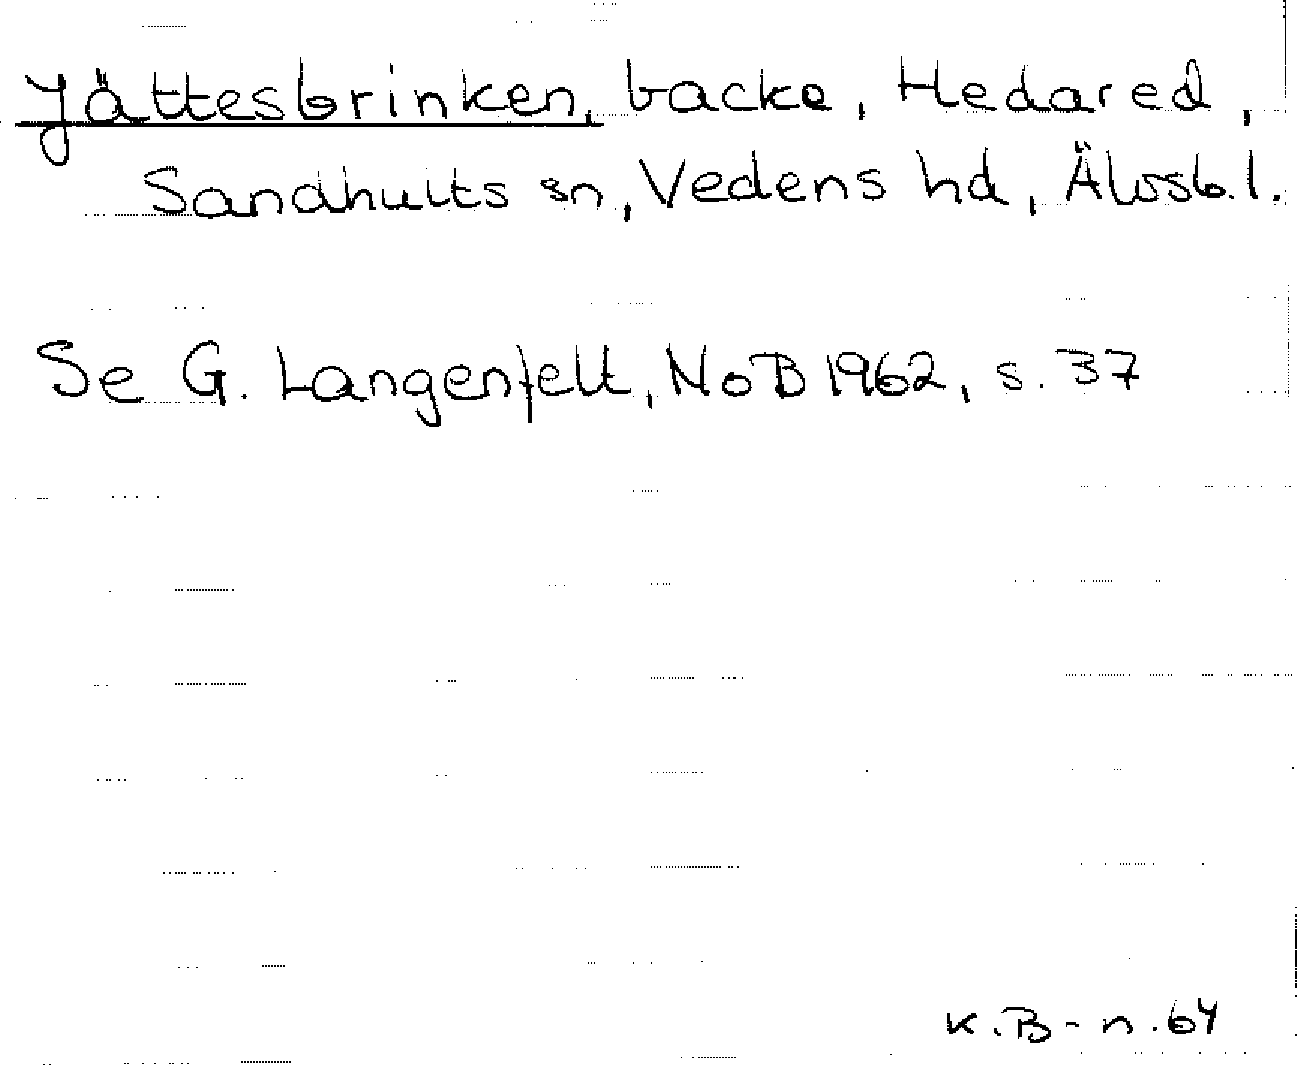 Jättesbrinken, backe, Hedared,
Sandhults sn, Vedens hd, Älvsb.l.
Se G. Langenfelt, NoB 1962, s. 37
K.B-n.64